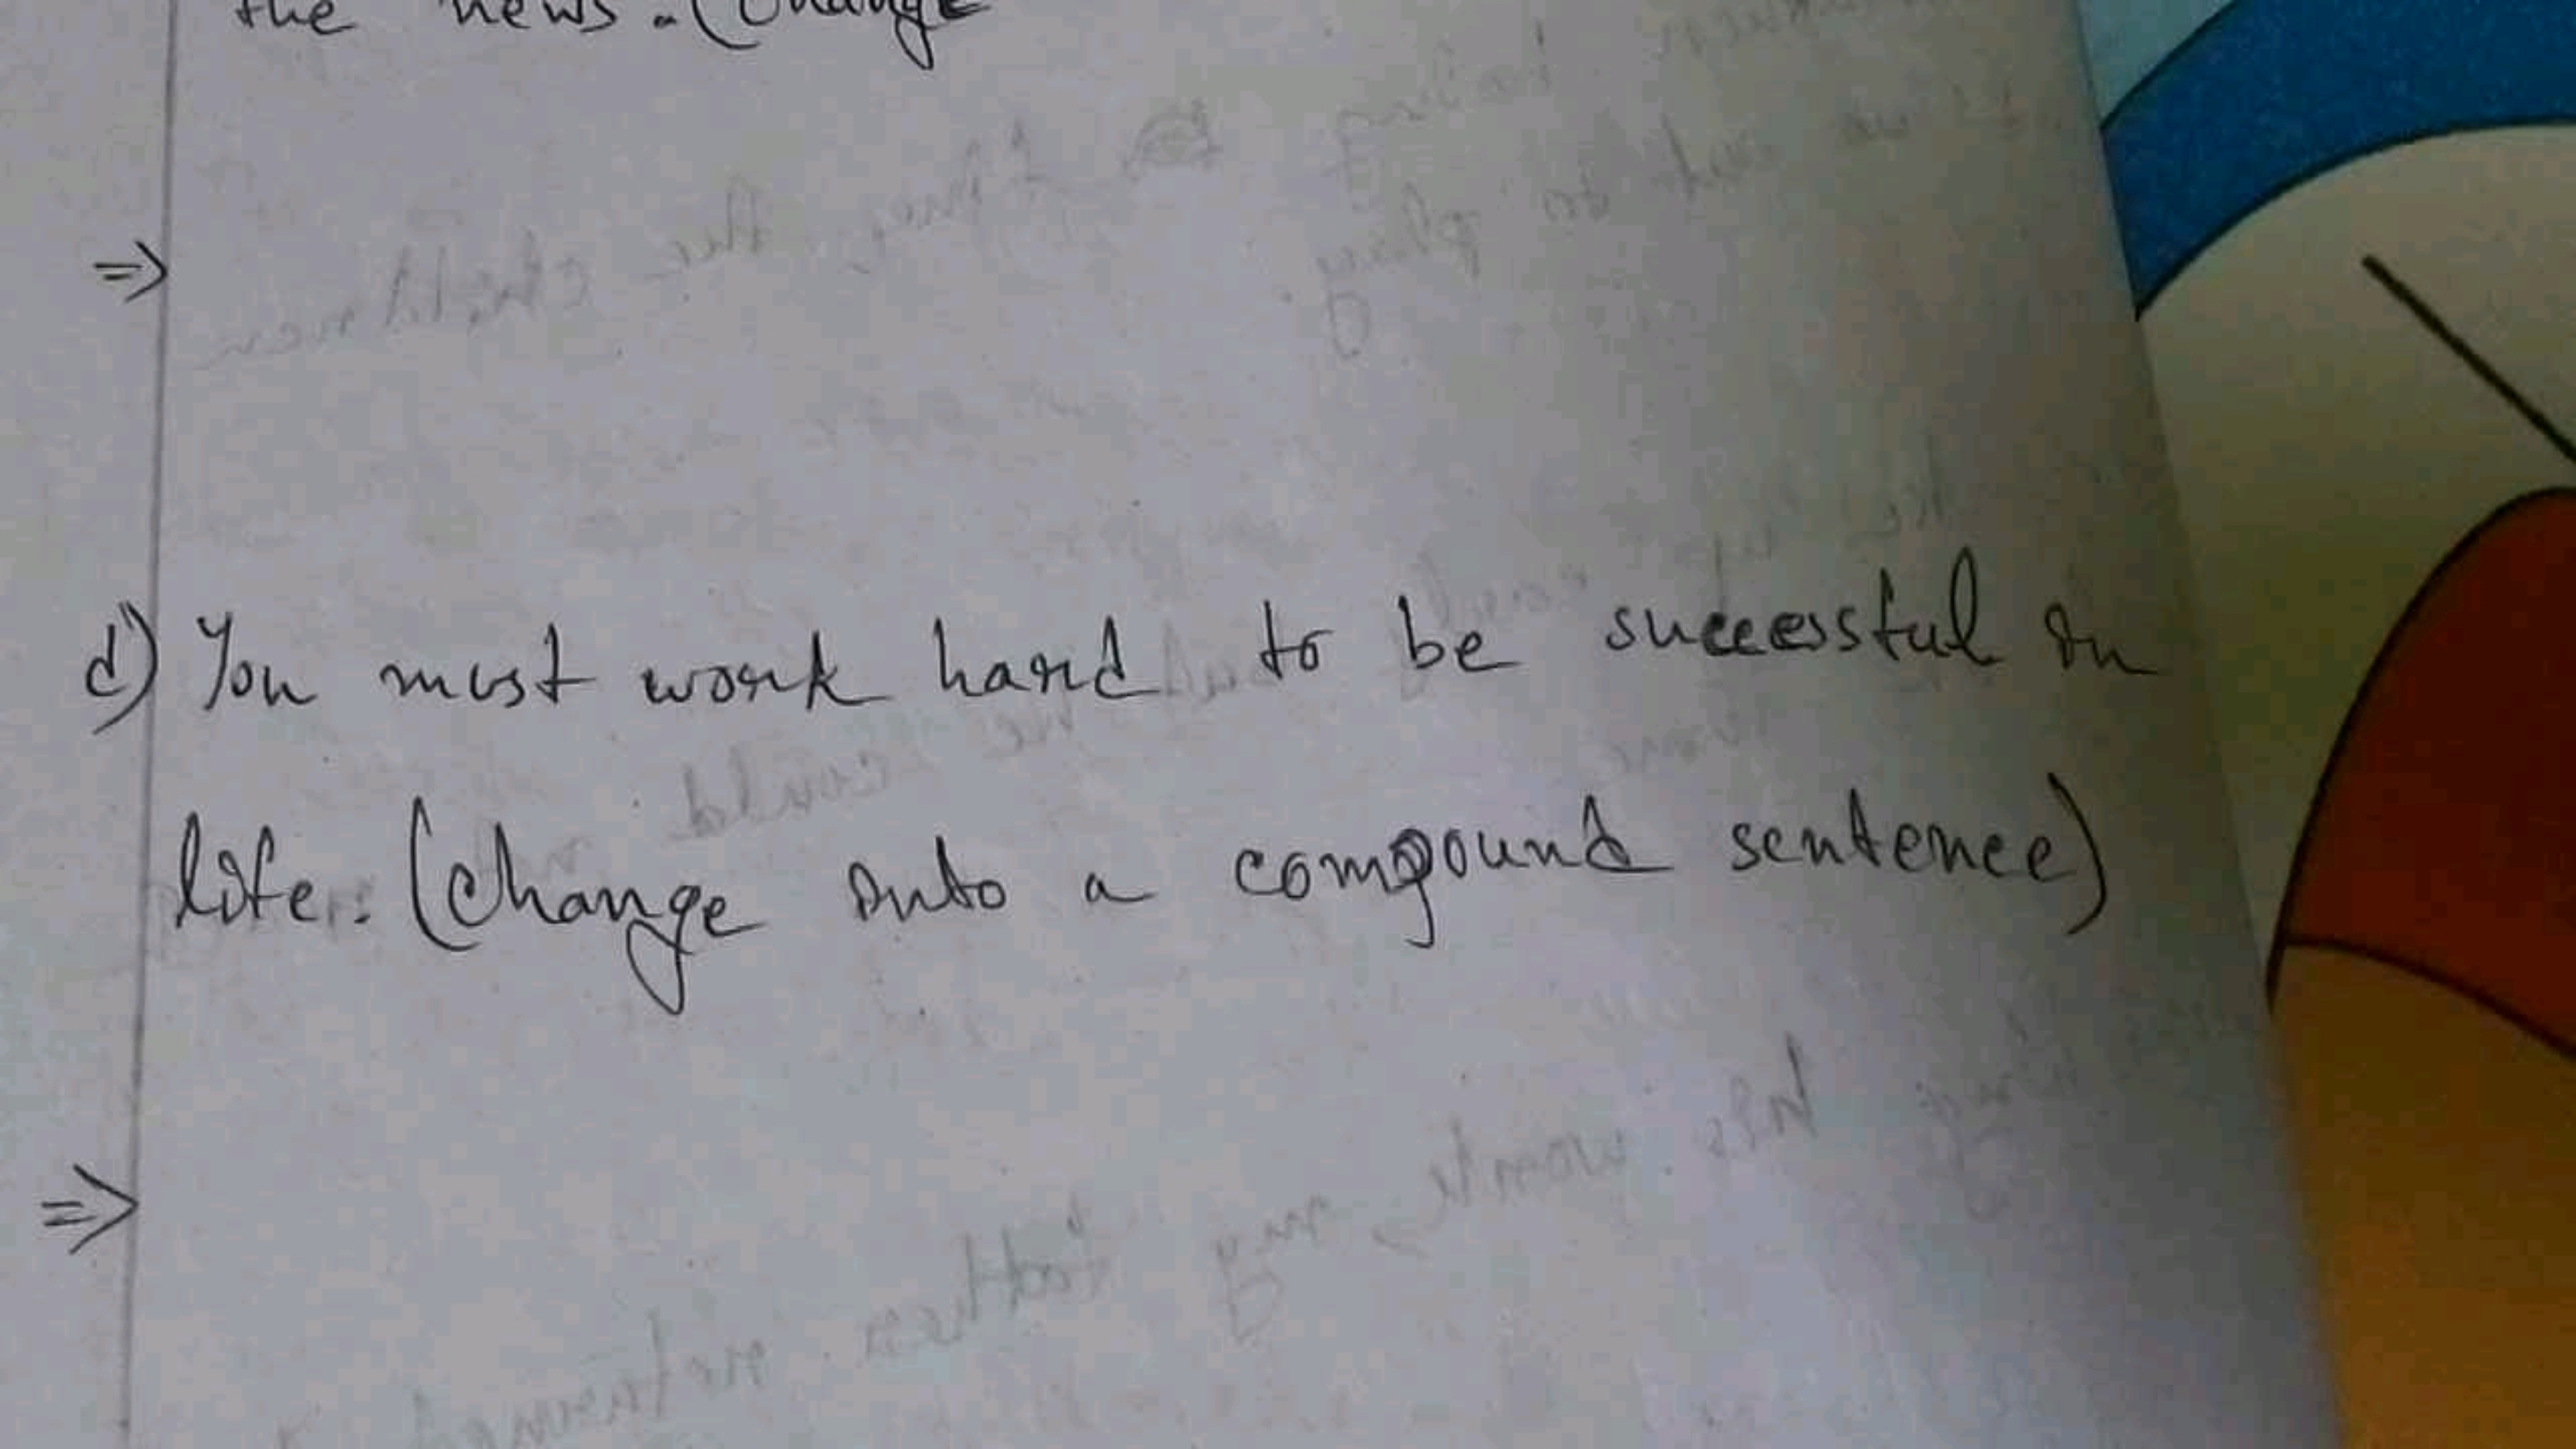 the news. (Change
=>
d) You must work hard to be successful in
life. (Change into a compound sentence)
=>